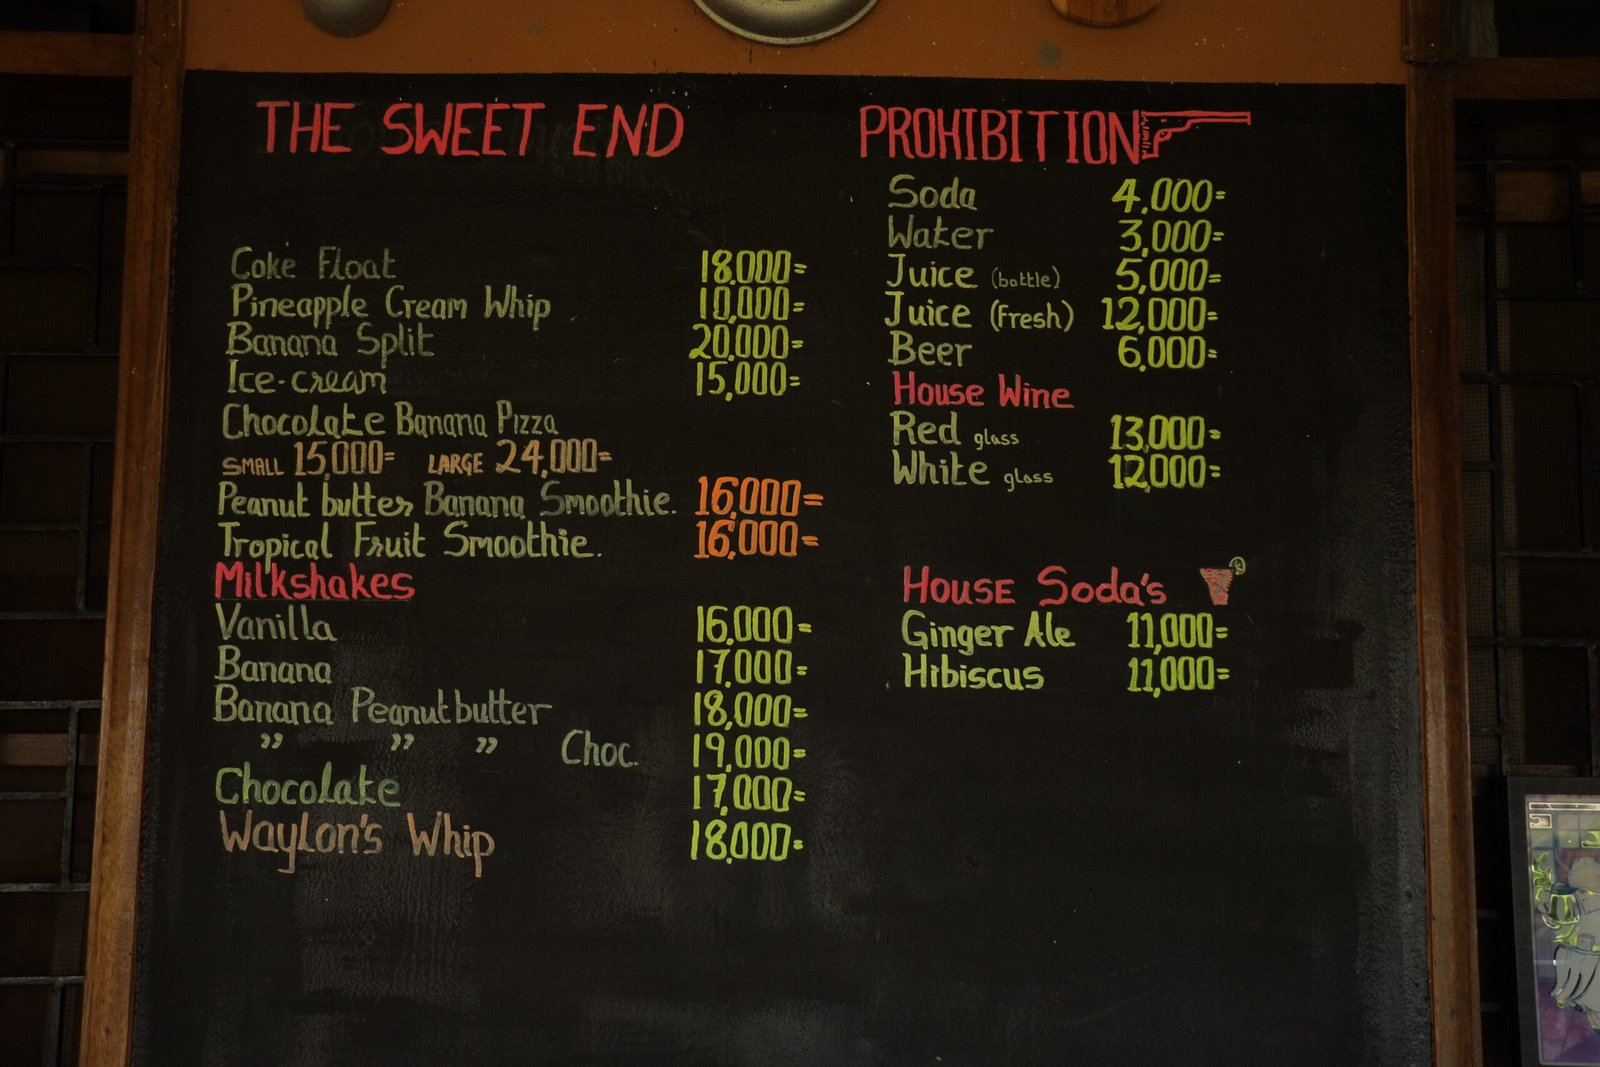 THE SWEET END
Coke Float 18.000=
Pineapple Cream Whip 10,000=
Banana Split 20,000=
Ice-cream 15,000=
Chocolate Banana Pizza
SMALL 15,000= LARGE 24,000=
Peanut butter Banana Smoothie. 16,000=
Tropical Fruit Smoothie. 16,000=
Milkshakes
Vanilla 16,000=
Banana 17.000=
Banana Peanutbutter 18,000=
" " " Choc. 19,000=
Chocolate 17,000=
Waylon's Whip 18.000=
PROHIBITION
Soda 4,000=
Water 3,000=
Juice (bottle) 5,000=
Juice (Fresh) 12,000=
Beer 6,000=
House Wine
Red glass 13,000=
White glass 12,000=
House Soda's
Ginger Ale 11,000=
Hibiscus 11,000=